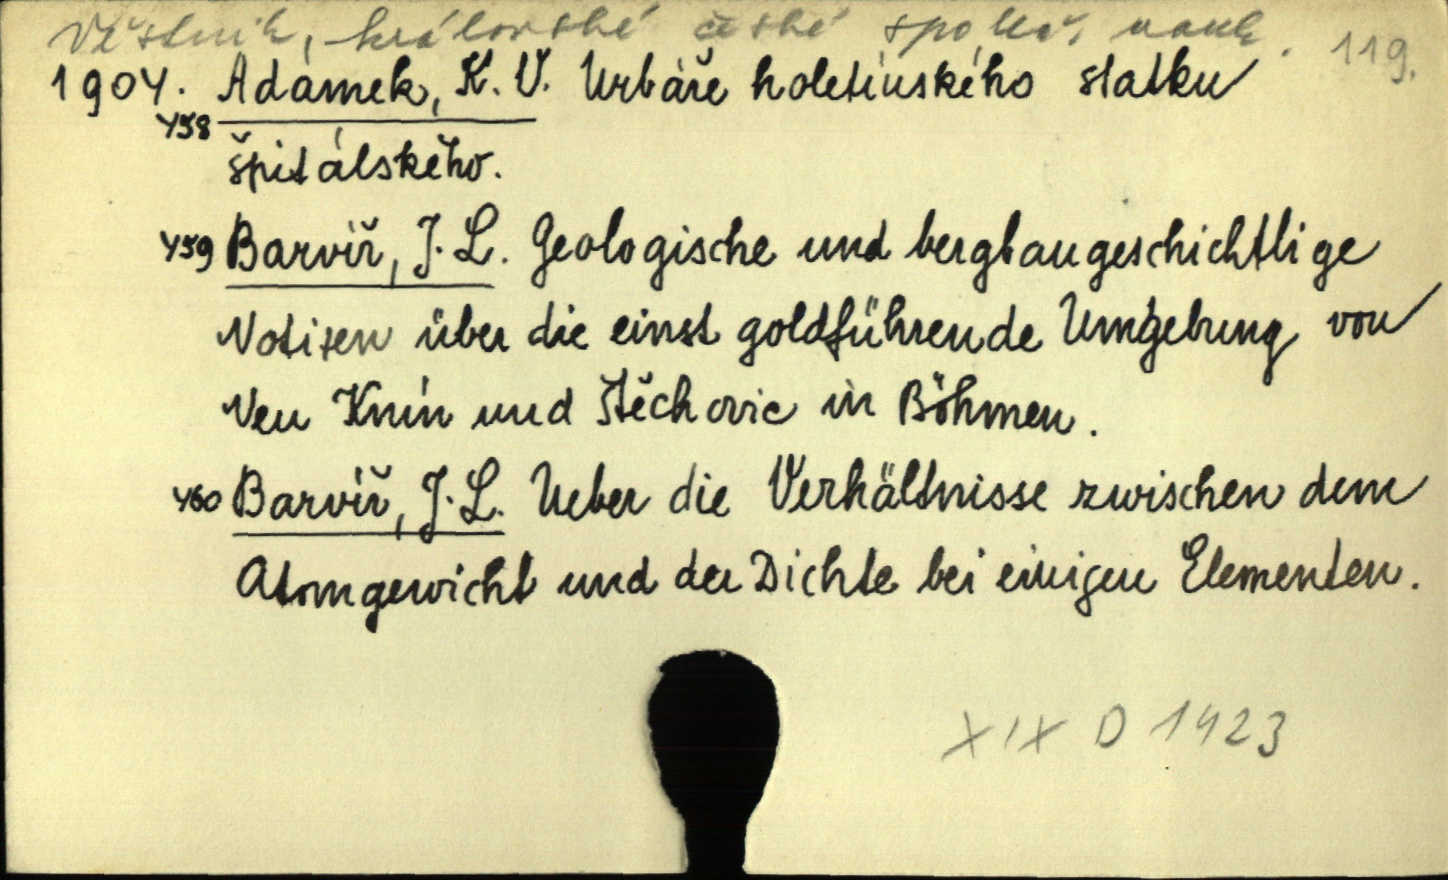 Věstník, královské české společ. nauk. 119.
1904. Adámek, K. V. Urbáře holetínského statku
458
špitálského.
459 Barvíř, J. L. Geologische und bergbaugeschichtlige
Notizen über die einst goldführende Umgebung von
Neu Knín und Štěchovic in Böhmen.
460 Barvíř, J. L. Ueber die Verhältnisse zwischen dem
Atomgewicht und der Dichte bei einigen Elementen.
XIX D 1423